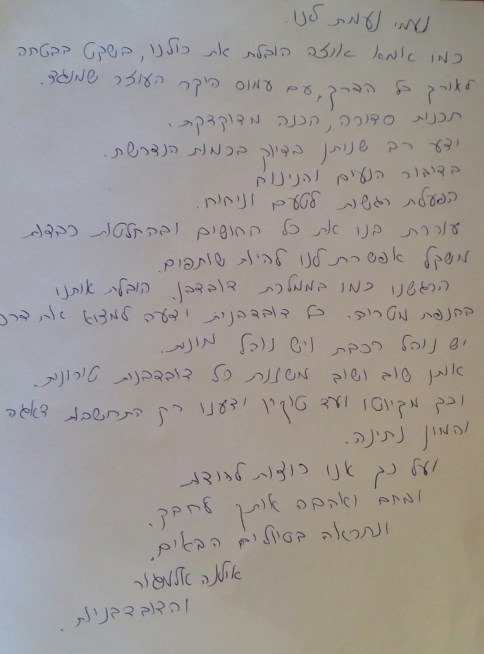 נעמי נעמת לנו.
כמו אמא אווזה הובלת את כולנו, בשקט בבטחה
לאורך כל הדרך, עם עמוס היקר העוזר שמנגד.
תכנית סדורה, הכנה מדוקדקת.
ידע רב שניתן בדיוק בכמות הנדרשת.
בדיבור הנעים והנינוח
הפעלת רגשות לטעם וניחוח.
עוררת בנו את כל החושים ובהחלטות כבדות
משקל אפשרת לנו להיות שותפים.
הרגשנו כמו בממלכת דובדבן. הובלת אותנו
בהנפת מטריה. כל דובדבנית ידעה למצוא את דרכ
יש נוהל רכבת ויש נוהל מונית.
אותן שוב ושוב משננת כל דובדבנית טירונית.
וכך מקיוטו ועד טוקיו ידענו רק התחשבות דאגה
והמון נתינה.
ועל כך אנו רוצות להודות
ובחם ואהבה אותך לחבק.
ונתראה בטיולים הבאים.
אילנה אלמגור
והדובדבניות.